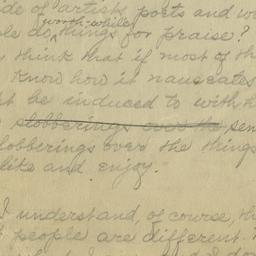 ide of artists, poets and wo
worth-while
le do things for praise?
think that if most of th
know how it nauseates
t be induced to with h
slobberings over the sen
lobberings over the things
like and enjoy.
I understand, of course, th
t people are different.